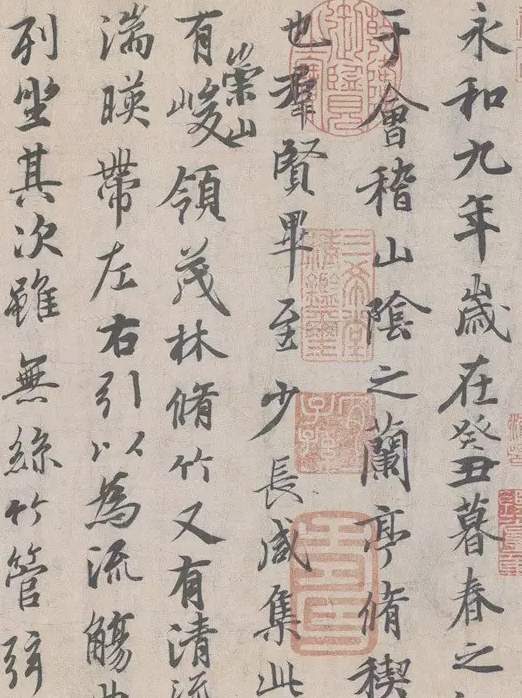 永和九年歲在癸丑暮春之
于會稽山陰之蘭亭脩稧
也羣賢畢至少長咸集此
有崇山峻領茂林脩竹又有清流
湍暎帶左右引以為流觴
列坐其次雖無絲竹管弦
三希堂精鑑璽